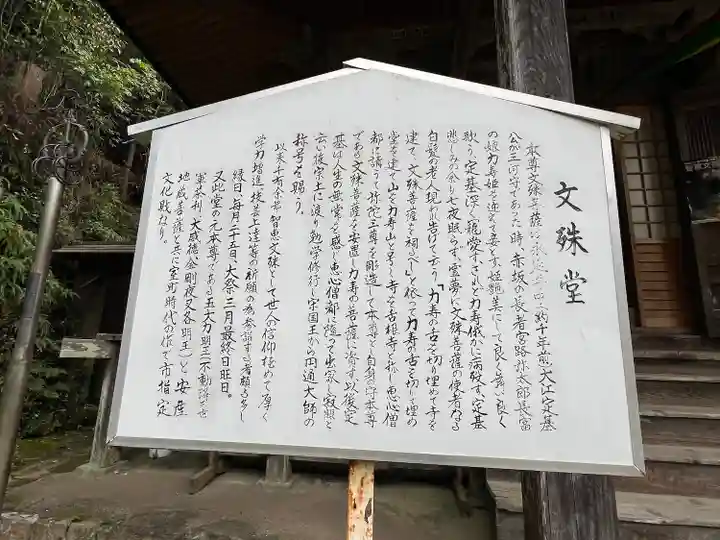 文殊堂
本尊文殊菩薩は永延年中(約千年前)大江定基
公が三河守であった時、赤坂の長者宮路弥太郎長富
の娘力寿姫を迎えて妾とす。姫艶美にして良く舞い良く
歌う。定基深く寵営す。されど力寿俄かに病歿す。定基
悲しみの余り七夜眠らず。霊夢に文殊菩薩の使者なる
白髪の老人現われ告げて云う「力寿の舌を切り埋めて寺を
建て、文殊菩薩を祠るべし」と依って力寿の舌を切りて埋め
堂を建て山を力寿山と号し寺を舌根寺と称し恵心僧
都に請うて弥陀三尊を彫造して本尊と自身の守本尊
である文殊菩薩を安置し力寿の菩薩に資す。以後定
基は人生の無常を感じ恵心僧都に随って出家し寂照と
云い後宋土に渡り勉学修行し宋国王から円通大師の
称号を賜う。
以来千有余年智恵文殊として世人の信仰極めて厚く
学力増進、技芸上達等の祈願の為参詣する者頗る多し
縁日、毎月二十五日、大祭三月最終日旺日。
又此堂の元本尊である五大力明王(不動、降三世
軍荼利、大威徳、金剛夜叉各明王)と安産
地蔵菩薩と共に室町時代の作で市指定
文化財なり。